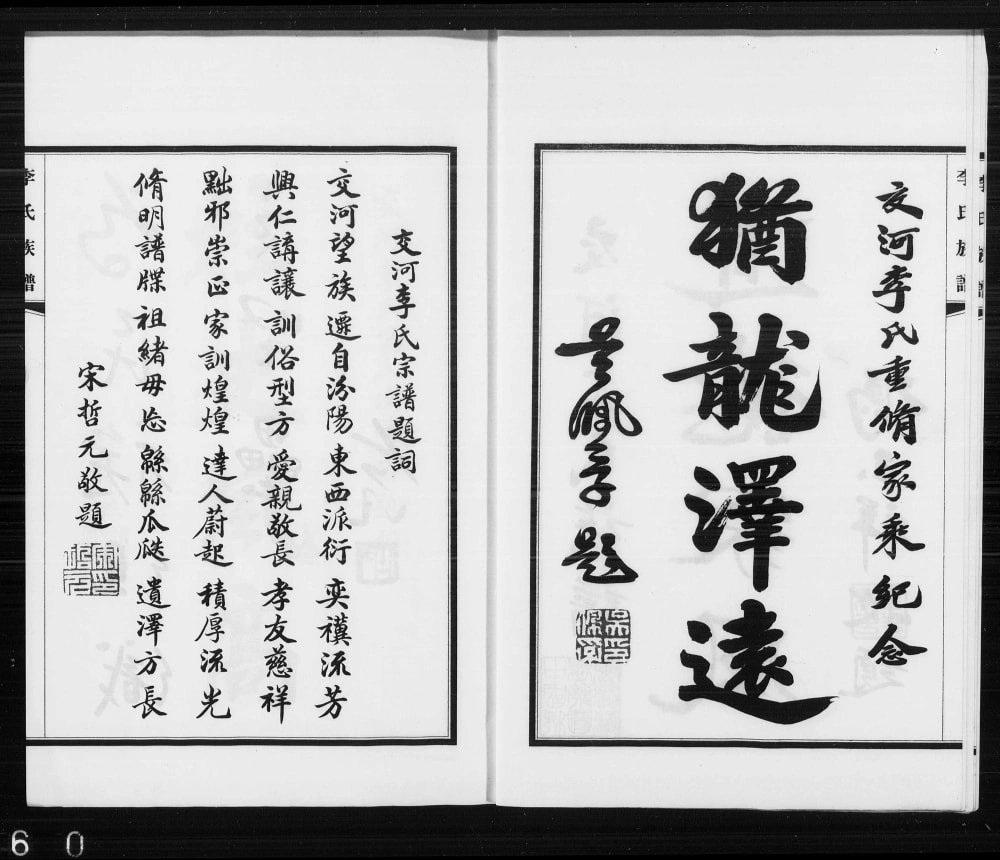 交河李氏重脩家乘紀念
猶龍澤遠
吳佩孚題
李氏族譜
交河李氏宗譜題詞
交河望族遷自汾陽東西派衍奕禩流芳
興仁講讓訓俗型方愛親敬長孝友慈祥
黜邪崇正家訓煌煌達人蔚起積厚流光
脩明譜牒祖緒毋忘緜緜瓜瓞遺澤方長
宋哲元敬題
李氏族譜
60